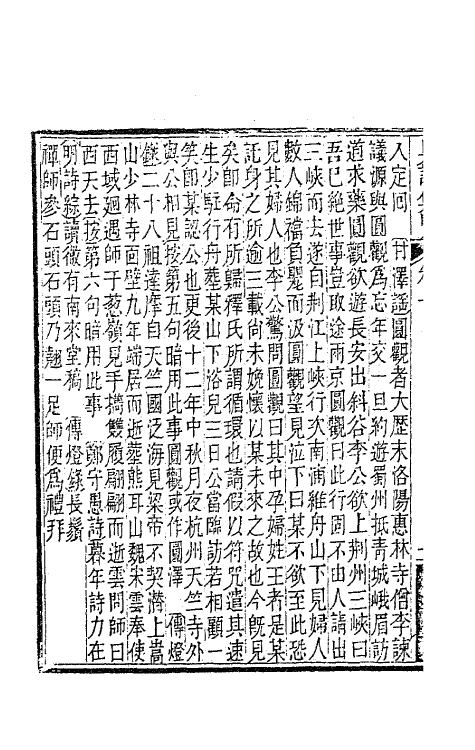 入定回　甘澤謡圓觀者大歴末洛陽惠林寺僧李諫
議源與圓觀爲忘年交一旦約遊蜀州抵青城峨眉訪
道求藥圓觀欲遊長安出斜谷李公欲上荆州三峽曰
吾已絶世事豈取途兩京圓觀曰此行固不由人請出
三峽而去遂自荆江上峽行次南浦維舟山下見婦人
數人絛襠負甖而汲圓觀望見泣下曰某不欲至此恐
見其婦人也李公驚問圓觀曰其中孕婦姓王者是某
託身之所逾三載尚未娩懷以某未來之故也今旣見
矣卽命有所歸釋氏所謂循環也請假以符咒遣其速
生少駐行舟葬某山下洛兒三日公當臨訪若相顧一
笑卽某認公也更後十二年中秋月夜杭州天竺寺外
與公相見按第五句暗用此事圓觀或作圓澤　傳燈
錄二十八祖達摩自天竺國泛海見梁帝不契潛上嵩
山少林寺面壁九年端居而逝葬熊耳山魏宋雲奉使
西域迴遇師于葱嶺見手攜雙履翩翩而逝雲問師曰
西天去按第六句暗用此事　鄭守愚詩暮年詩力在
明詩綜讀徹有南來堂稿　傳燈錄長鬚
禪師參石頭石頭乃翹一足師便爲禮拜